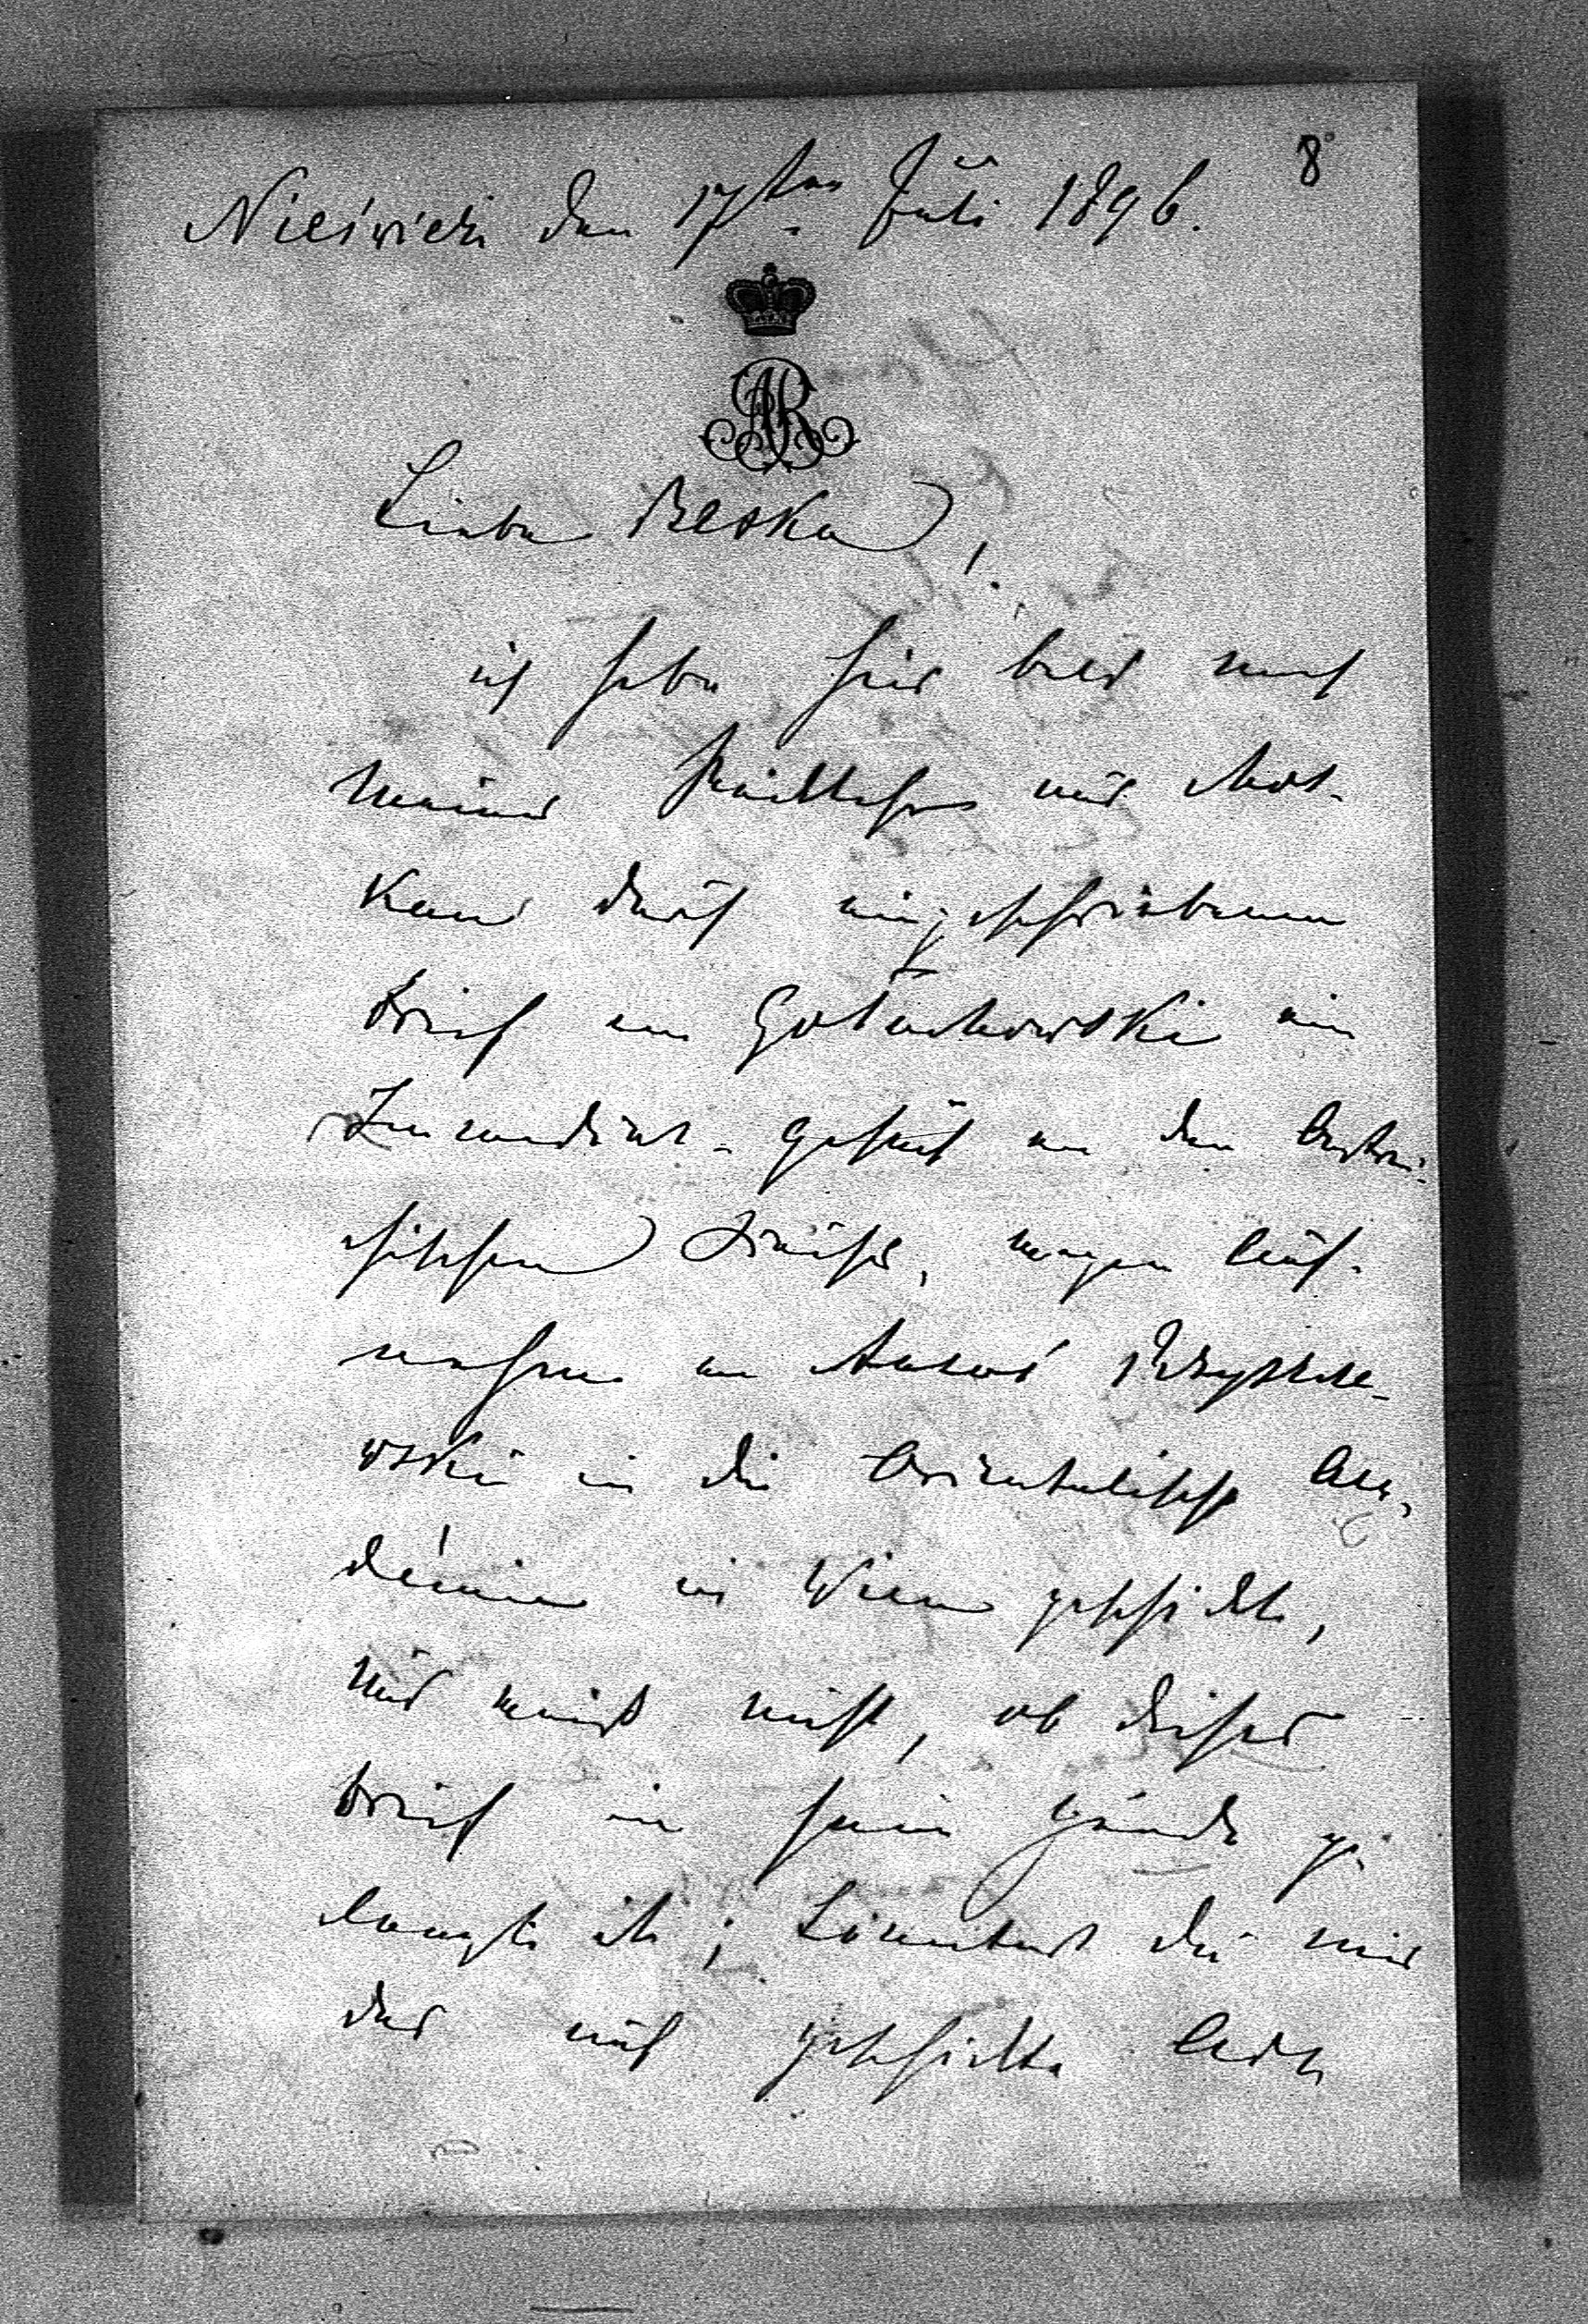 8
Nieśwież den 17ten Juli 1896.
AR
Liebe Beska,
ich habe hier bald nach
meiner Rückkehr aus Mos-
kau durch eingeschriebenen
Brief an Gołuchowski ein
Immediat-Gesuch an den Oestrei-
chischen Kaiser, wegen Auf-
nahme von Antoś
wski in die Orientalische Aca-
démie in Wien geschickt,
und weiß nicht, ob dieser
Brief in seine Hände ge-
langt ist; könntest du mir
das auf geschickte Art